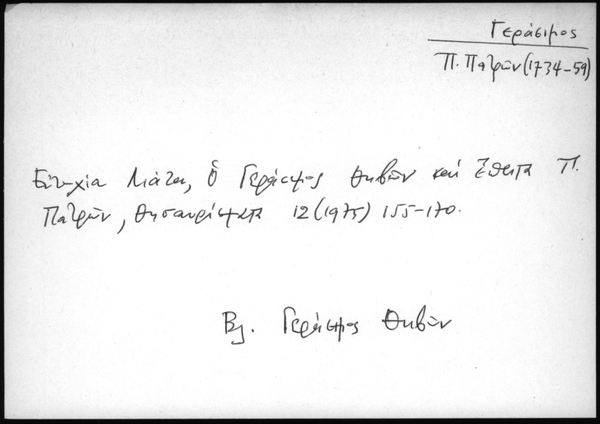 Γεράσιμος
Π. Πατρῶν (1734-59)
Εὐτυχία Λιάτα, Ὁ Γεράσιμος Θηβῶν καὶ ἔπειτα Π.
Πατρῶν, Θησαυρίσματα 12 (1975) 155-170.
Βλ. Γεράσιμος Θηβῶν